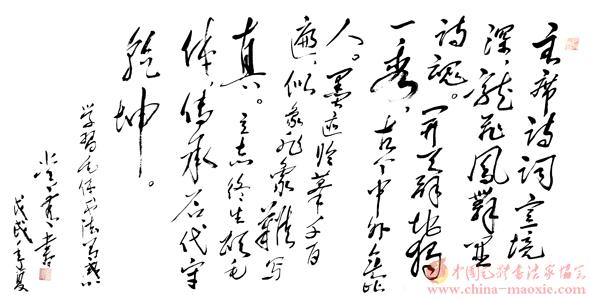 主席诗词言境
深，龙飞凤舞显
诗魂。开天辟地独
一秀，古今中外无此
人。墨迹临摹千百
遍，似象非象难写
真。立志终生颂毛
体，传承后代守
乾坤。
学习毛体书法有感
书
戊戌年夏
中国毛体书法家协会
www.china-maoxie.com